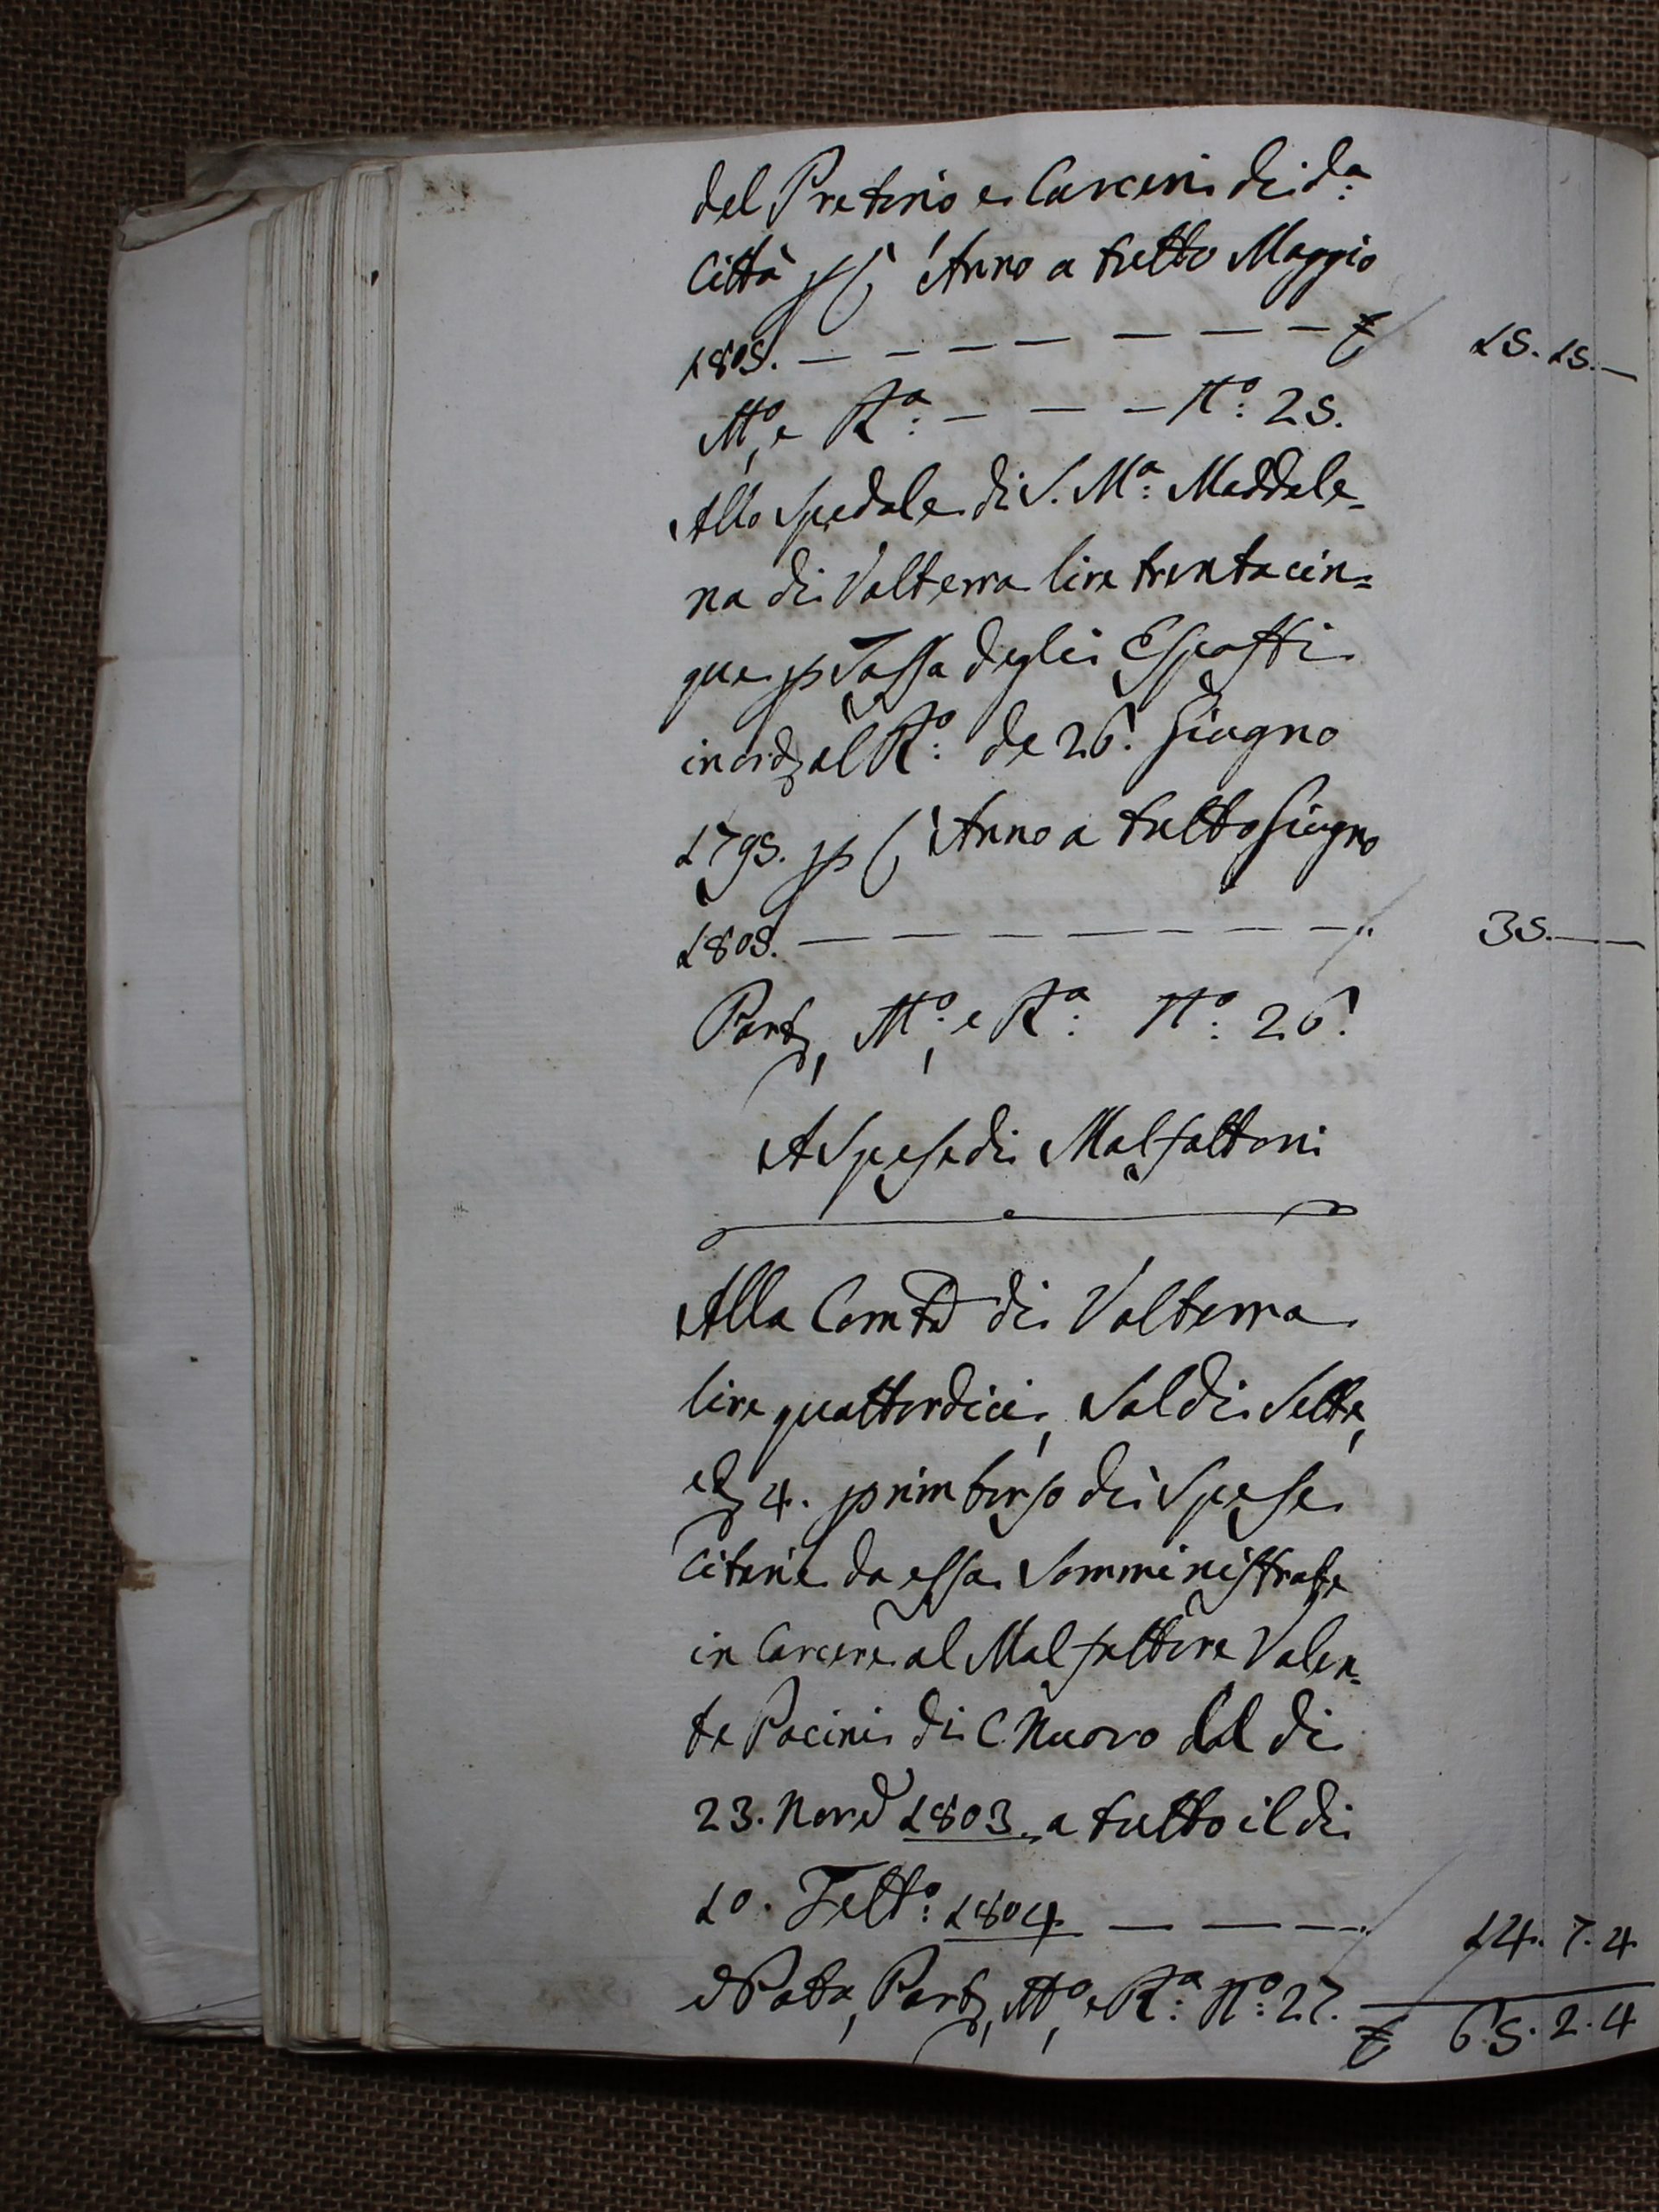 del Pretorio e Carceri di d.a
Città p l'Anno a tutto Maggio
1805. — — — — — — — £ 15. 15. —
M.o, e R.a: — — — N.o: 25.
Allo Spedale di S. M.a: Maddale-
na di Volterra lire trentacin=
que p Tassa degli Esposti
in ord. al R.o: de 26. Giugno
1795. p l'Anno a tutto Giugno
1805. — — — — — — — 35. — —
Part, M.o: e R.a: N.o: 26.
A Spese di Malfattori
Alla Com.tà di Volterra
lire quattordici, Soldi Sette,
e d 4. p rimborso di Spese
Citarie da essa Somministrate
in Carcere al Malfattore Valen-
te Pacini di C. Nuovo dal di
23. Nov.e 1803. a tutto il di
10. Febb.o: 1804 — — — 14. 7. 4
Nota, Part, M.o, e R.a: N.o: 27.
£ 65. 2. 4